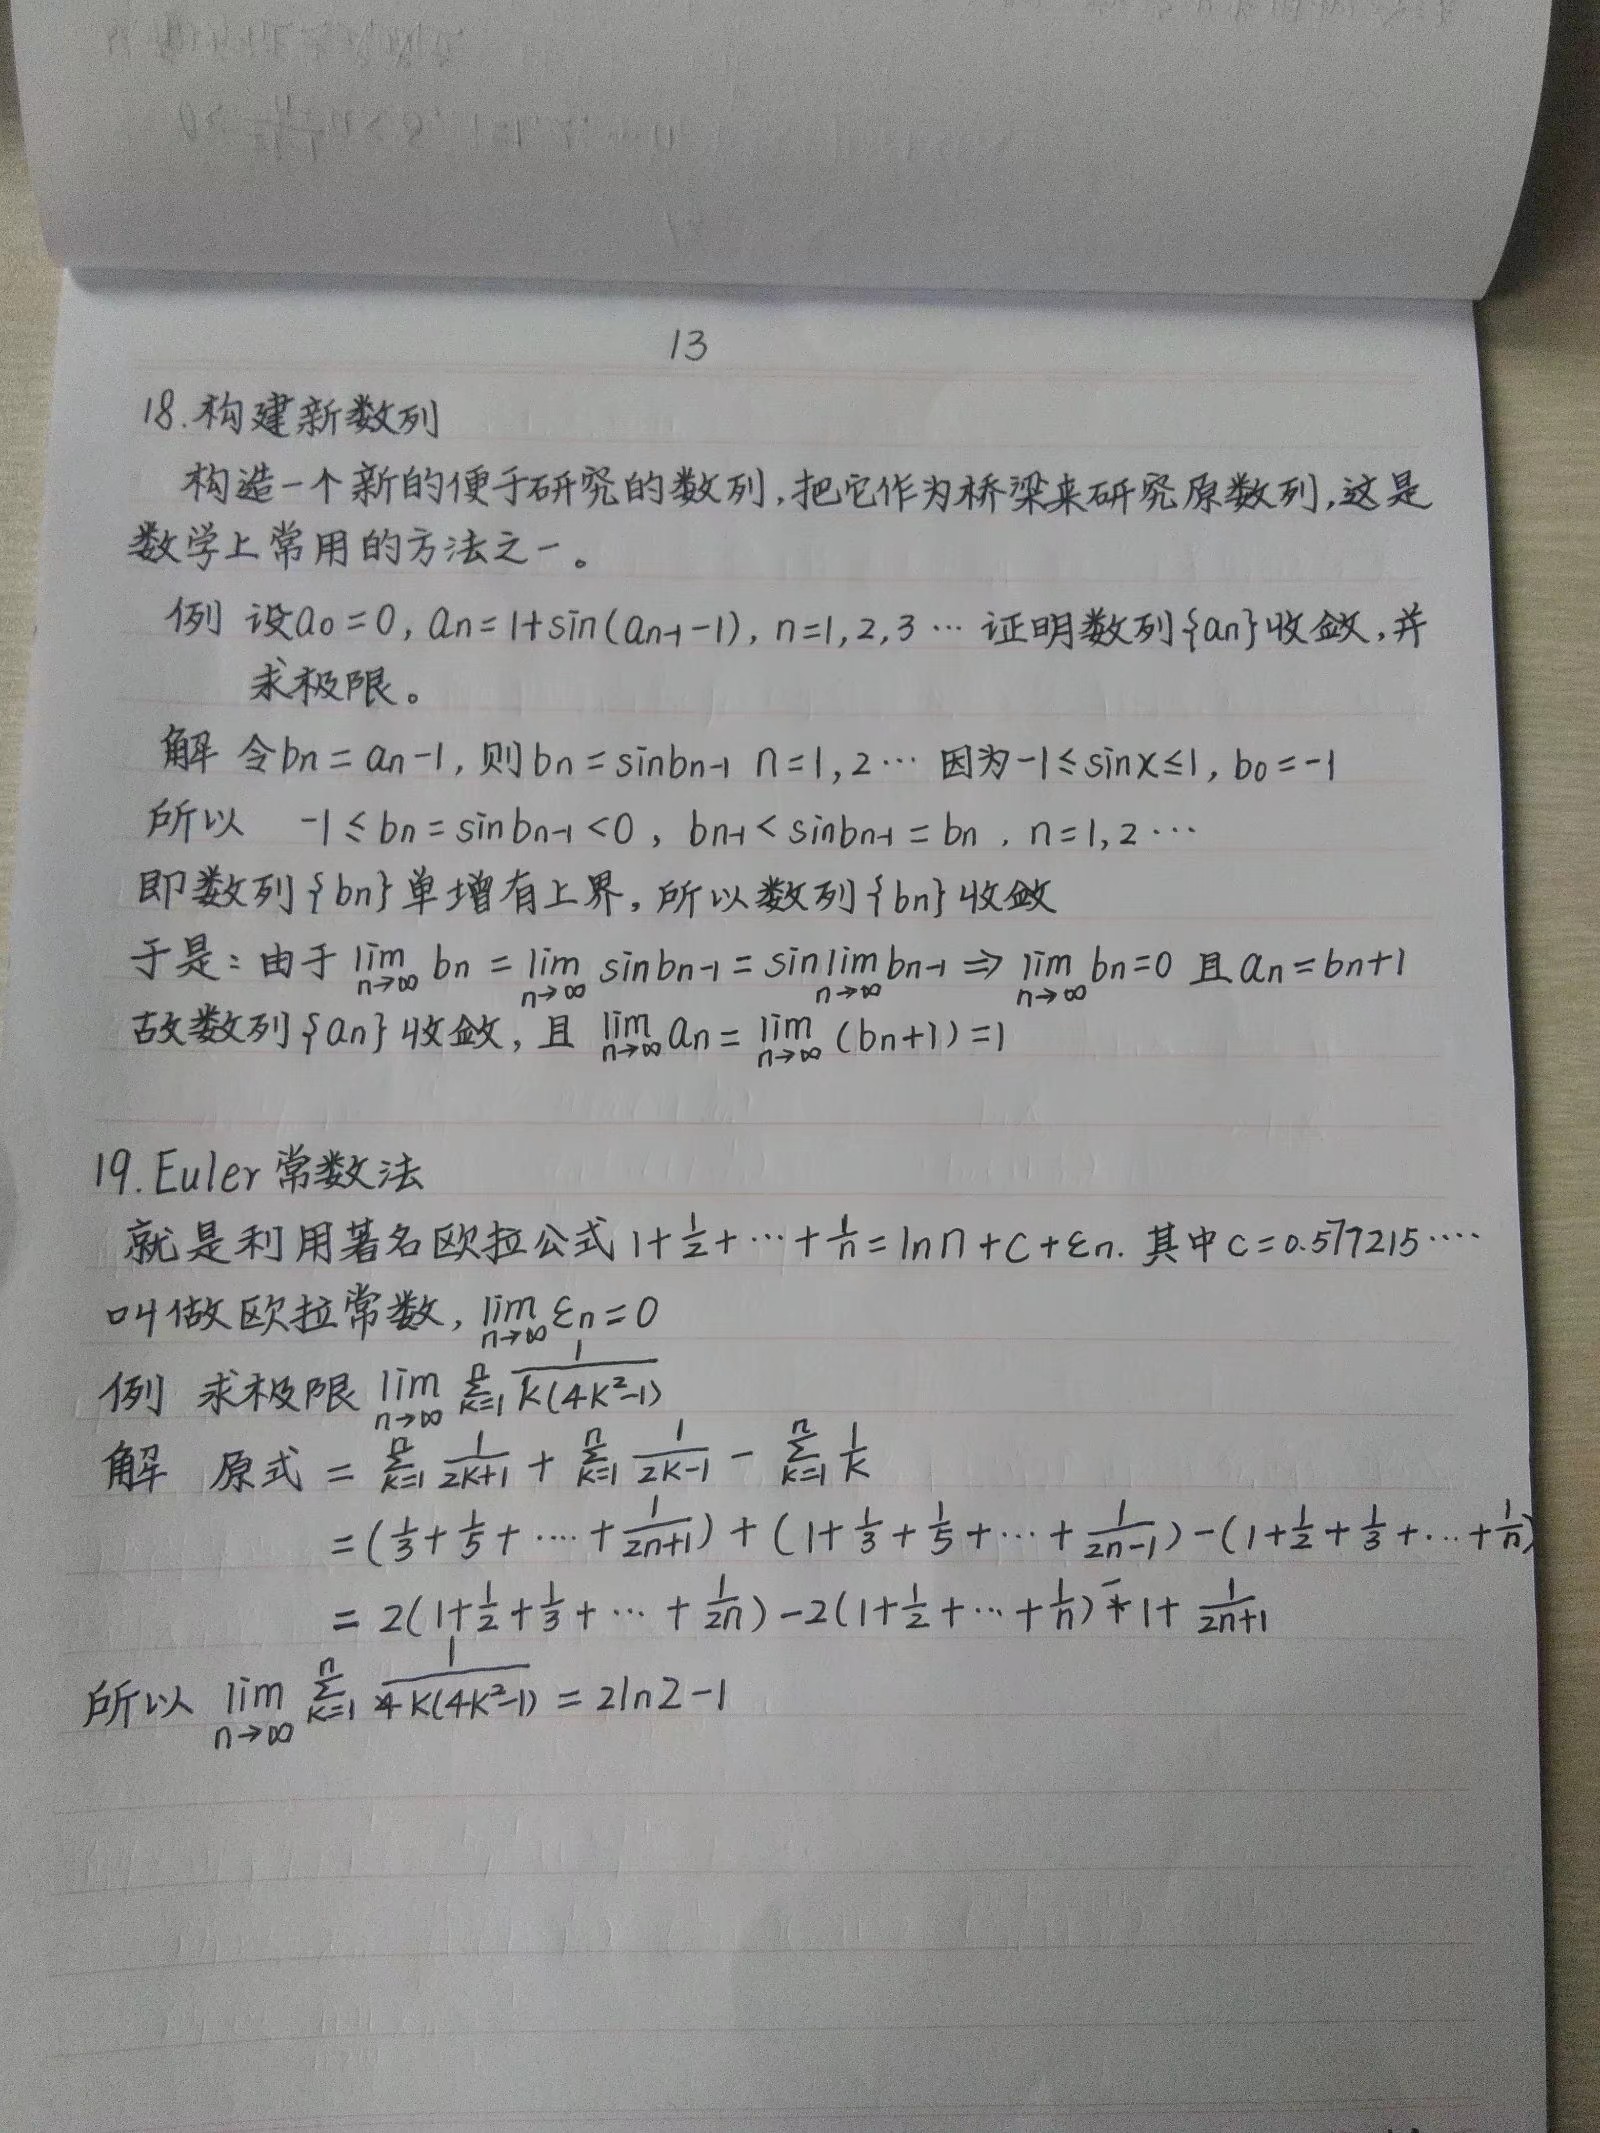 13
18.构建新数列
构造一个新的便于研究的数列,把它作为桥梁来研究原数列,这是
数学上常用的方法之一。
例 设a₀=0, aₙ=1+sin(aₙ₋₁-1), n=1,2,3… 证明数列{aₙ}收敛,并
求极限。
解 令bₙ=aₙ-1, 则bₙ=sinbₙ₋₁ n=1,2… 因为-1≤sinx≤1, b₀=-1
所以 -1≤bₙ=sinbₙ₋₁<0, bₙ₋₁<sinbₙ₋₁=bₙ, n=1,2…
即数列{bₙ}单增有上界,所以数列{bₙ}收敛
于是:由于 lim_{n→∞} bₙ = lim_{n→∞} sinbₙ₋₁ = sin lim_{n→∞} bₙ₋₁ ⇒ lim_{n→∞} bₙ=0 且 aₙ=bₙ+1
故数列{aₙ}收敛,且 lim_{n→∞} aₙ = lim_{n→∞} (bₙ+1)=1
19.Euler常数法
就是利用著名欧拉公式 1+1/2+…+1/n=lnn+c+εₙ. 其中c=0.577215….
叫做欧拉常数, lim_{n→∞} εₙ=0
例 求极限 lim_{n→∞} ∑_{k=1}^{n} 1/(k(4k²-1))
解 原式 = ∑_{k=1}^{n} 1/(2k+1) + ∑_{k=1}^{n} 1/(2k-1) - ∑_{k=1}^{n} 1/k
=(1/3+1/5+….+1/(2n+1))+(1+1/3+1/5+…+1/(2n-1))-(1+1/2+1/3+…+1/n)
=2(1+1/2+1/3+…+1/(2n))-2(1+1/2+…+1/n)-1+1/(2n+1)
所以 lim_{n→∞} ∑_{k=1}^{n} 1/(k(4k²-1)) = 2ln2-1